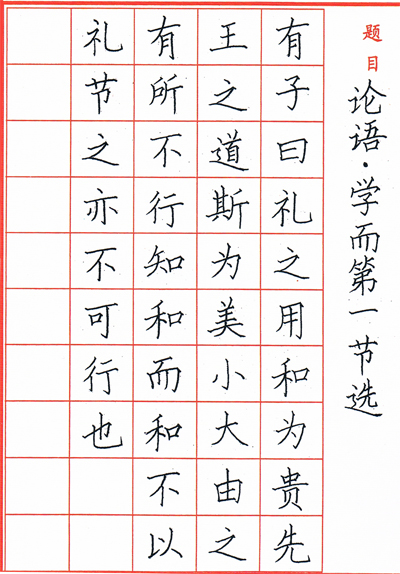 题目
论语·学而第一节选
有子曰礼之用和为贵先
王之道斯为美小大由之
有所不行知和而和不以
礼节之亦不可行也